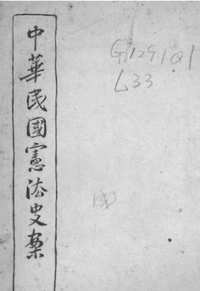 中華民國憲法史案
L33